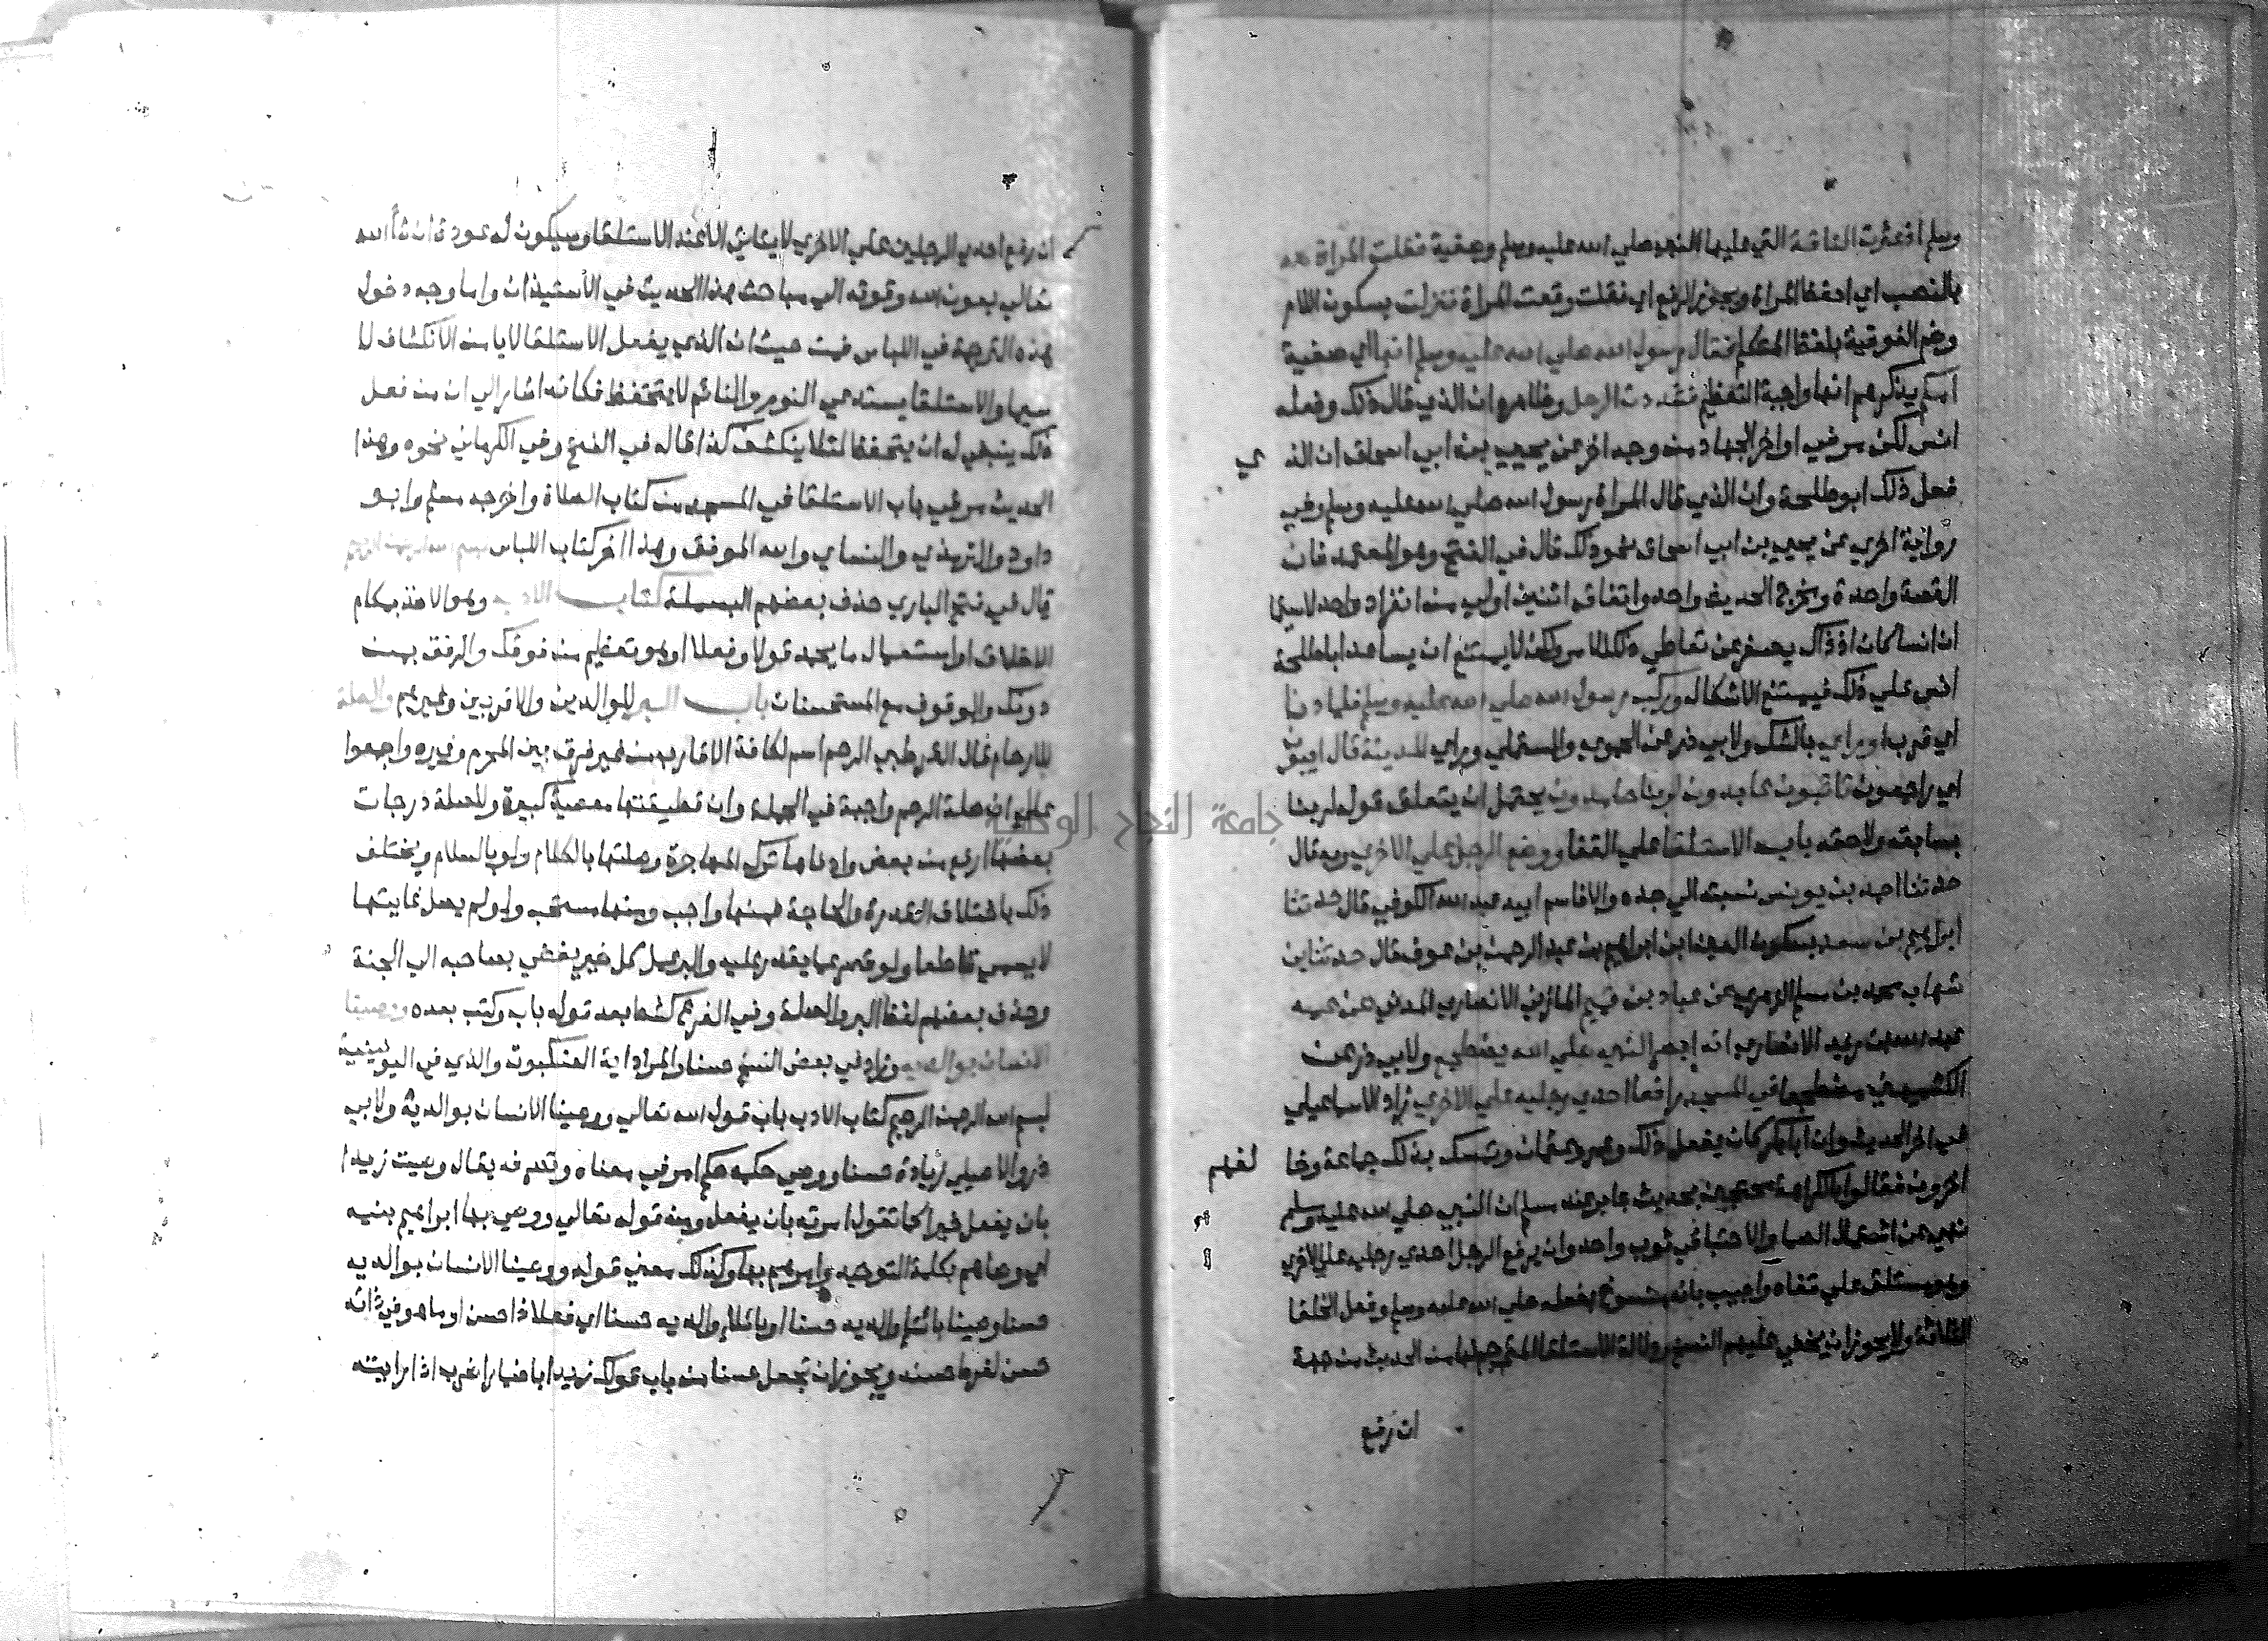 وسلم اذ عثرت الناقة التي عليها النبي صلي الله عليه وسلم وصفية فقلت المراة
بالنصب اي احفظ المراة ويجوز الرفع اي فقلت وقعت المراة فنزلت بسكون اللام
وضم الفوقية بلفظ المتكلم فقال رسول الله صلي الله عليه وسلم انها اي صفية
امكم يذكرهم انها واجبة التعظيم فشددت الرحل وظاهره ان الذي قال ذلك وفعله
انس لكن مر في اواخر الجهاد من وجه اخر عن يحيي بن ابي اسحاق ان الذي
فعل ذلك ابو طلحة وان الذي قال المراة رسول الله صلي الله عليه وسلم وفي
رواية اخري عن يحيي بن ابي اسحاق نحو ذلك قال في الفتح وهو المعتمد فان
القصة واحدة ومخرج الحديث واحد واتفاق اثنين اولي من انفراد واحد لاسيما
ان انسا كان اذ ذاك يصغر عن تعاطي ذلك الامر ولكن لا يمتنع ان يساعد ابا طلحة
انس علي ذلك فيمتنع الاشكال وركب رسول الله صلي الله عليه وسلم فلما دنا
اي قرب او راي بالشك ولابي ذر عن الحموي والمستملي وراي المدينة قال ايبون
اي راجعون تائبون عابدون لربنا حامدون يحتمل ان يتعلق قوله لربنا
بسابقه ولاحقه باب الاستلقا علي القفا ووضع الرجل علي الاخري وبه قال
حدثنا احمد بن يونس نسبة الي جده والا فاسم ابيه عبد الله الكوفي قال حدثنا
ابراهيم بن سعد بسكون العين ابن ابراهيم بن عبد الرحمن بن عوف قال حدثنا ابن
شهاب محمد بن مسلم الزهري عن عباد بن تميم المازني الانصاري المدني عن عمه
عبد الله بن زيد الانصاري انه ابصر النبي صلي الله يضطجع ولابي ذر عن
الكشميهني مضطجعا في المسجد رافعا احدي رجليه علي الاخري زاد الاسماعيلي
في اخر الحديث وان ابا بكر كان يفعل ذلك وعمر وعثمان وتمسك بذلك جماعة وخا لفهم
اخرون فقالوا بالكراهة محتجين بحديث جابر عند مسلم ان النبي صلي الله عليه وسلم
نهي عن اشتمال الصما والاحتبا في ثوب واحد وان يرفع الرجل احدي رجليه علي الاخري
وهو مستلق علي قفاه واجيب بانه منسوخ بفعله صلي الله عليه وسلم وفعل الخلفا
الثلاثة ولا يجوز ان يخفي عليهم النسخ من الحديث من جهة
ان رفع
ان رفع احدي الرجلين علي الاخري لا يتاتي الا عند الاستلقا وسيكون له عودة ان شا الله
تعالي بعون الله وقوته الي مباحث هذا الحديث في الاستيذان واما وجه دخول
هذه الترجمة في اللباس فمن حيث ان الذي يفعل الاستلقا لا يامن الانكشاف لا
سيما والاستلقا يستدعي النوم والنائم لا يتحفظ فكانه اشار الي ان من فعل
ذلك ينبغي له ان يتحفظ لئلا ينكشف كذا قاله في الفتح وفي الكرماني نحوه وهذا
الحديث مر في باب الاستلقا في المسجد من كتاب الصلاة واخرجه مسلم وابو
داود والترمذي والنساي والله الموفق وهذا اخر كتاب اللباس بسم الله الرحمن الرحيم
قال في فتح الباري حذف بعضهم البسملة كتاب الادب وهو الاخذ بمكارم
الاخلاق او استعمال ما يحمد قولا وفعلا او هو تعظيم من فوقك والرفق بمن
دونك والوقوف مع المستحسنات باب البر للوالدين والاقربين وغيرهم والصلة
للارحام قال القرطبي الرحم اسم لكافة الاقارب من غير فرق بين المحرم وغيره واجمعوا
علي ان صلة الرحم واجبة في الجملة وان قطيعتها معصية كبيرة وللصلة درجات
بعضها ارفع من بعض وادناها ترك المهاجرة وصلتها بالكلام ولو بالسلام ويختلف
ذلك باختلاف القدرة والحاجة فمنها واجب ومنها مستحب ولو لم يصل غايتها
لا يسمي قاطعا ولو قصر عما يقدر عليه والبر عمل كل خير يفضي بصاحبه الي الجنة
وحذف بعضهم لفظ البر والصلة وفي الفرع كشط بعد قوله باب وكتب بعده ووصينا
الانسان بوالديه وزاد في بعض النسخ حسنا والمراد اية العنكبوت والذي في اليونينية
بسم الله الرحمن الرحيم كتاب الادب باب قول الله تعالي ووصينا الانسان بوالديه ولابي
ذر والاصيلي زيادة حسنا ووصي حكمه حكم امر في معناه وتصرفه يقال وصيت زيدا
بان يفعل خيرا كما تقول امرته بان يفعل ومنه قوله تعالي ووصي بها ابراهيم بنيه
اي وصاهم بكلمة التوحيد وامرهم بها وكذلك معني قوله ووصينا الانسان بوالديه
حسنا وصيناه بايتاء والديه حسنا او بايلاء والديه حسنا اي فعلا ذا حسن او ما هو في ذاته
حسن لفرط حسنه ويجوز ان تجعل حسنا من باب قولك زيدا باضمار اضرب اذا رايته
جامعة النجاح الوطنية